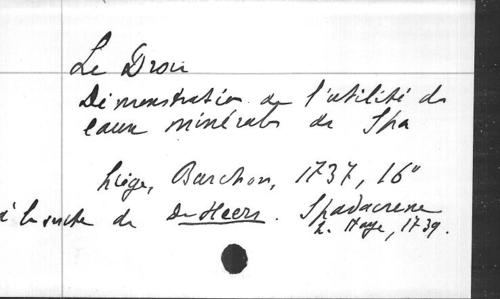 Le Drou
Démonstration de l'utilité des
eaux minérales de Spa
Liège, Barchon, 1737, 16°
à la suite de De Heers. Spadacrene
L. Haye, 1739.